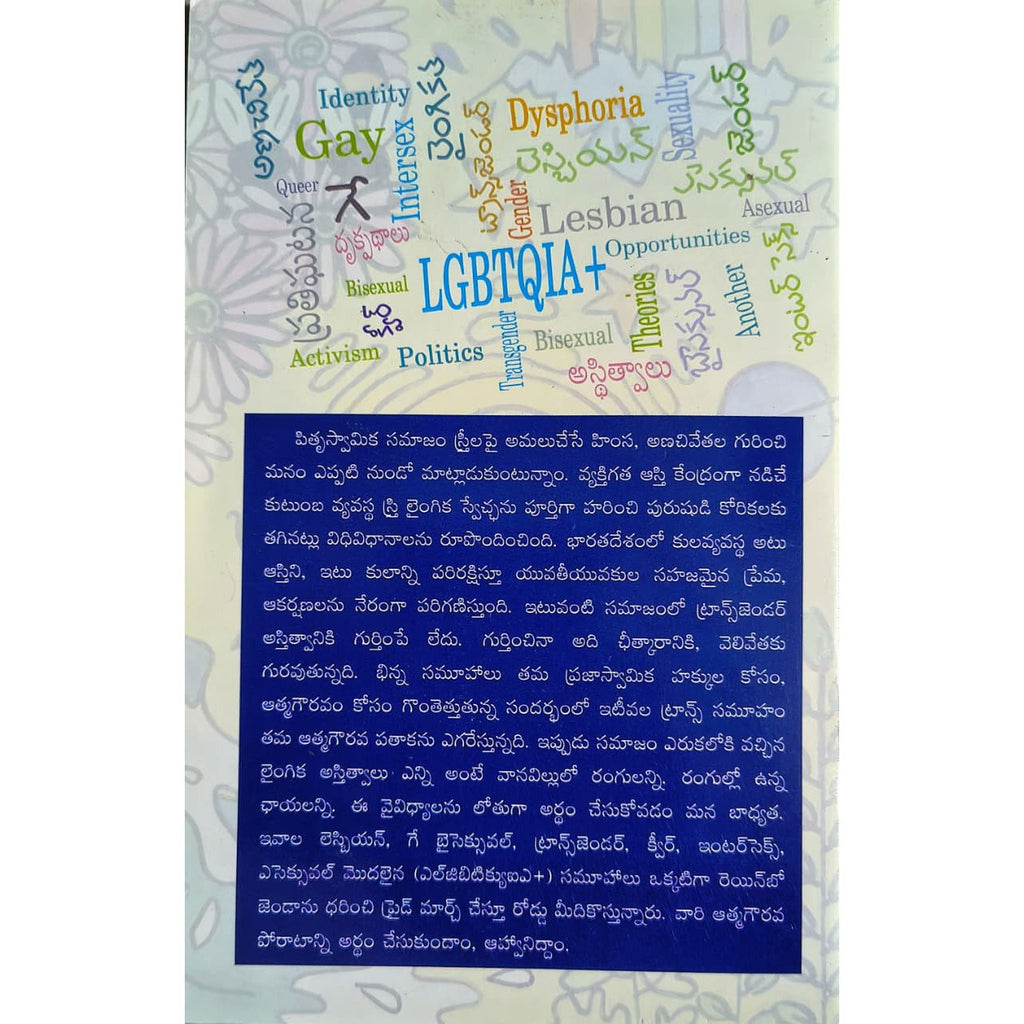 అణచివేత
Identity
లైంగికత
Gay
Intersex
ట్రాన్స్‌జెండర్
Dysphoria
Sexuality
జెండర్
లెస్బియన్
ఎసెక్సువల్
Queer
గే
Gender
Lesbian
Asexual
ప్రతిఘటన
దృక్పథాలు
Opportunities
LGBTQIA+
Bisexual
Theories
Another
ఇంటర్ సెక్స్
Activism
Politics
Transgender
Bisexual
అస్థిత్వాలు
పితృస్వామిక సమాజం స్త్రీలపై అమలుచేసే హింస, అణచివేతల గురించి
మనం ఎప్పటి నుండో మాట్లాడుకుంటున్నాం. వ్యక్తిగత ఆస్తి కేంద్రంగా నడిచే
కుటుంబ వ్యవస్థ స్త్రీ లైంగిక స్వేచ్ఛను పూర్తిగా హరించి పురుషుడి కోరికలకు
తగినట్లు విధివిధానాలను రూపొందించింది. భారతదేశంలో కులవ్యవస్థ అటు
ఆస్తిని, ఇటు కులాన్ని పరిరక్షిస్తూ యువతీయువకుల సహజమైన ప్రేమ,
ఆకర్షణలను నేరంగా పరిగణిస్తుంది. ఇటువంటి సమాజంలో ట్రాన్స్‌జెండర్
అస్తిత్వానికి గుర్తింపే లేదు. గుర్తించినా అది ఛీత్కారానికి, వెలివేతకు
గురవుతున్నది. భిన్న సమూహాలు తమ ప్రజాస్వామిక హక్కుల కోసం,
ఆత్మగౌరవం కోసం గొంతెత్తుతున్న సందర్భంలో ఇటీవల ట్రాన్స్ సమూహం
తమ ఆత్మగౌరవ పతాకను ఎగరేస్తున్నది. ఇప్పుడు సమాజం ఎరుకలోకి వచ్చిన
లైంగిక అస్తిత్వాలు ఎన్ని అంటే వానవిల్లులో రంగులన్ని. రంగుల్లో ఉన్న
ఛాయలన్ని. ఈ వైవిధ్యాలను లోతుగా అర్థం చేసుకోవడం మన బాధ్యత.
ఇవాల లెస్బియన్, గే బైసెక్సువల్, ట్రాన్స్‌జెండర్, క్వీర్, ఇంటర్‌సెక్స్,
ఎసెక్సువల్ మొదలైన (ఎల్‌జిబిటిక్యుఐఎ+) సమూహాలు ఒక్కటిగా రెయిన్‌బో
జెండాను ధరించి ప్రైడ్ మార్చ్ చేస్తూ రోడ్డు మీదికొస్తున్నారు. వారి ఆత్మగౌరవ
పోరాటాన్ని అర్థం చేసుకుందాం, ఆహ్వానిద్దాం.